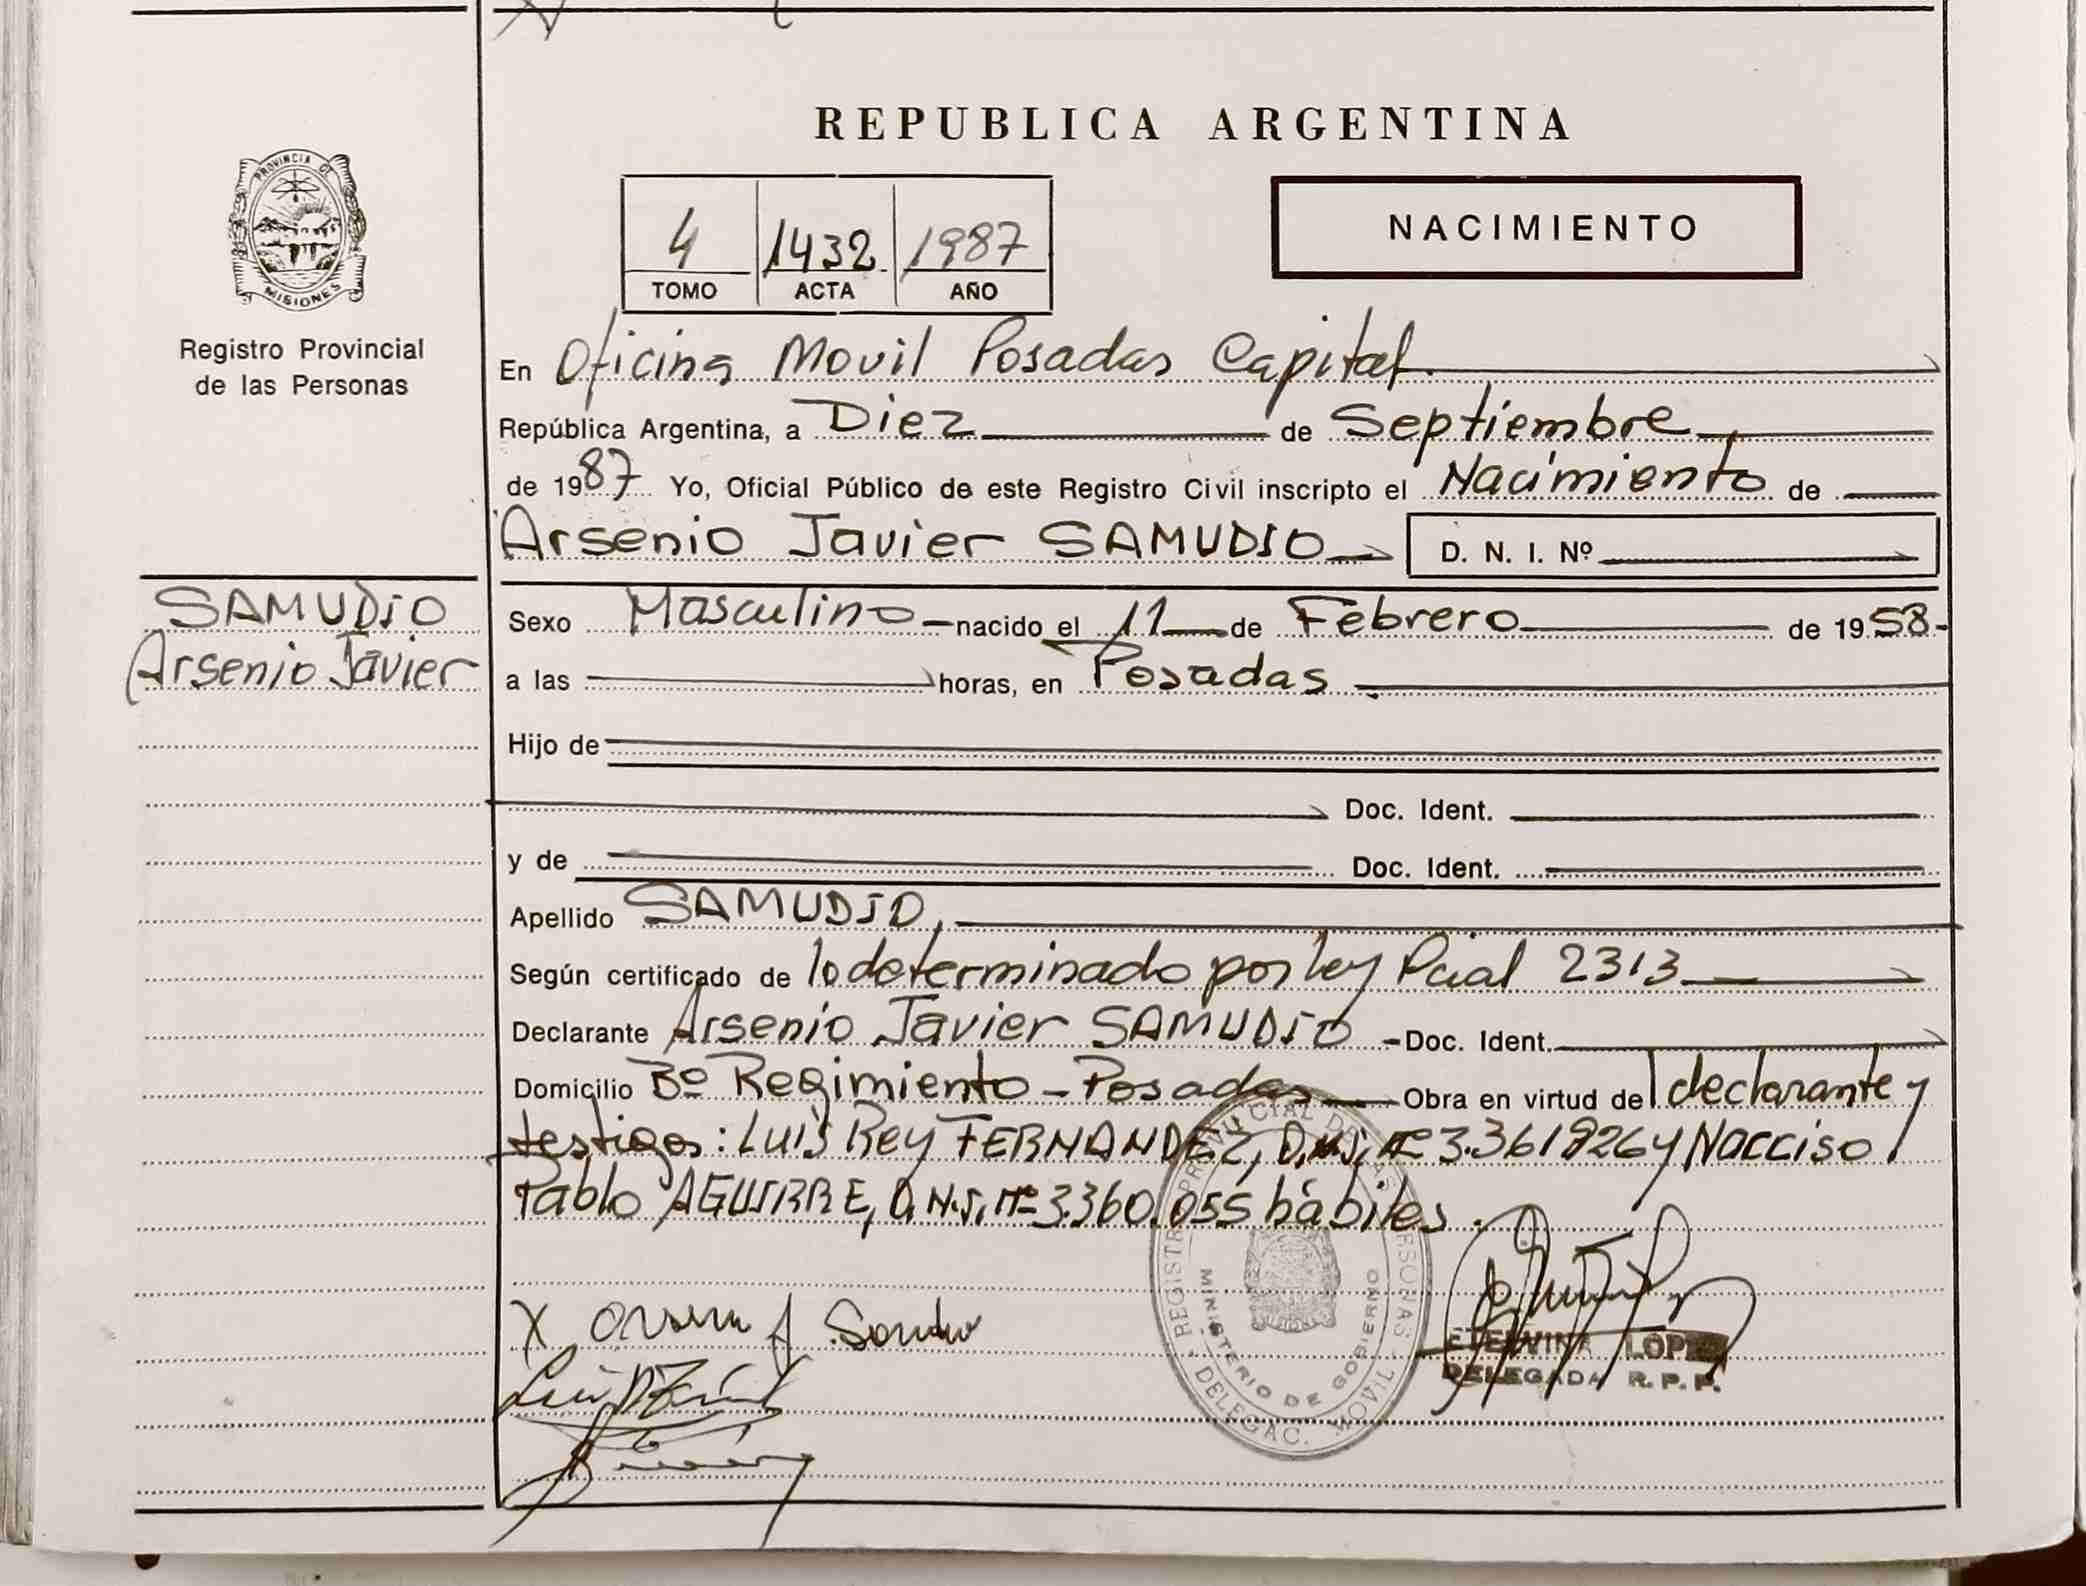 REPUBLICA ARGENTINA
PROVINCIA DE
MISIONES
Registro Provincial
de las Personas
4 1432 1987
TOMO ACTA AÑO
NACIMIENTO
En Oficina Movil Posadas Capital
República Argentina, a Diez de Septiembre
de 1987 Yo, Oficial Público de este Registro Civil inscripto el Nacimiento de
Arsenio Javier SAMUDIO D. N. I. Nº
SAMUDIO
Arsenio Javier
Sexo Masculino nacido el 11 de Febrero de 1958
a las horas, en Posadas
Hijo de
Doc. Ident.
y de Doc. Ident.
Apellido SAMUDIO,
Según certificado de lo determinado por ley Pcial 2313
Declarante Arsenio Javier SAMUDIO Doc. Ident.
Domicilio 3º Regimiento - Posadas Obra en virtud del declarante y
testigos: LUIS Rey FERNANDEZ, D.N.I. nº 3.361.926 y Narciso
Pablo AGUIRRE, D.N.I. nº 3.360.055 hábiles.
X
REGISTRO PROVINCIAL DE LAS PERSONAS
MINISTERIO DE GOBIERNO
DELEGAC. MOVIL
ETELVINA LOPEZ
DELEGADA R. P. P.